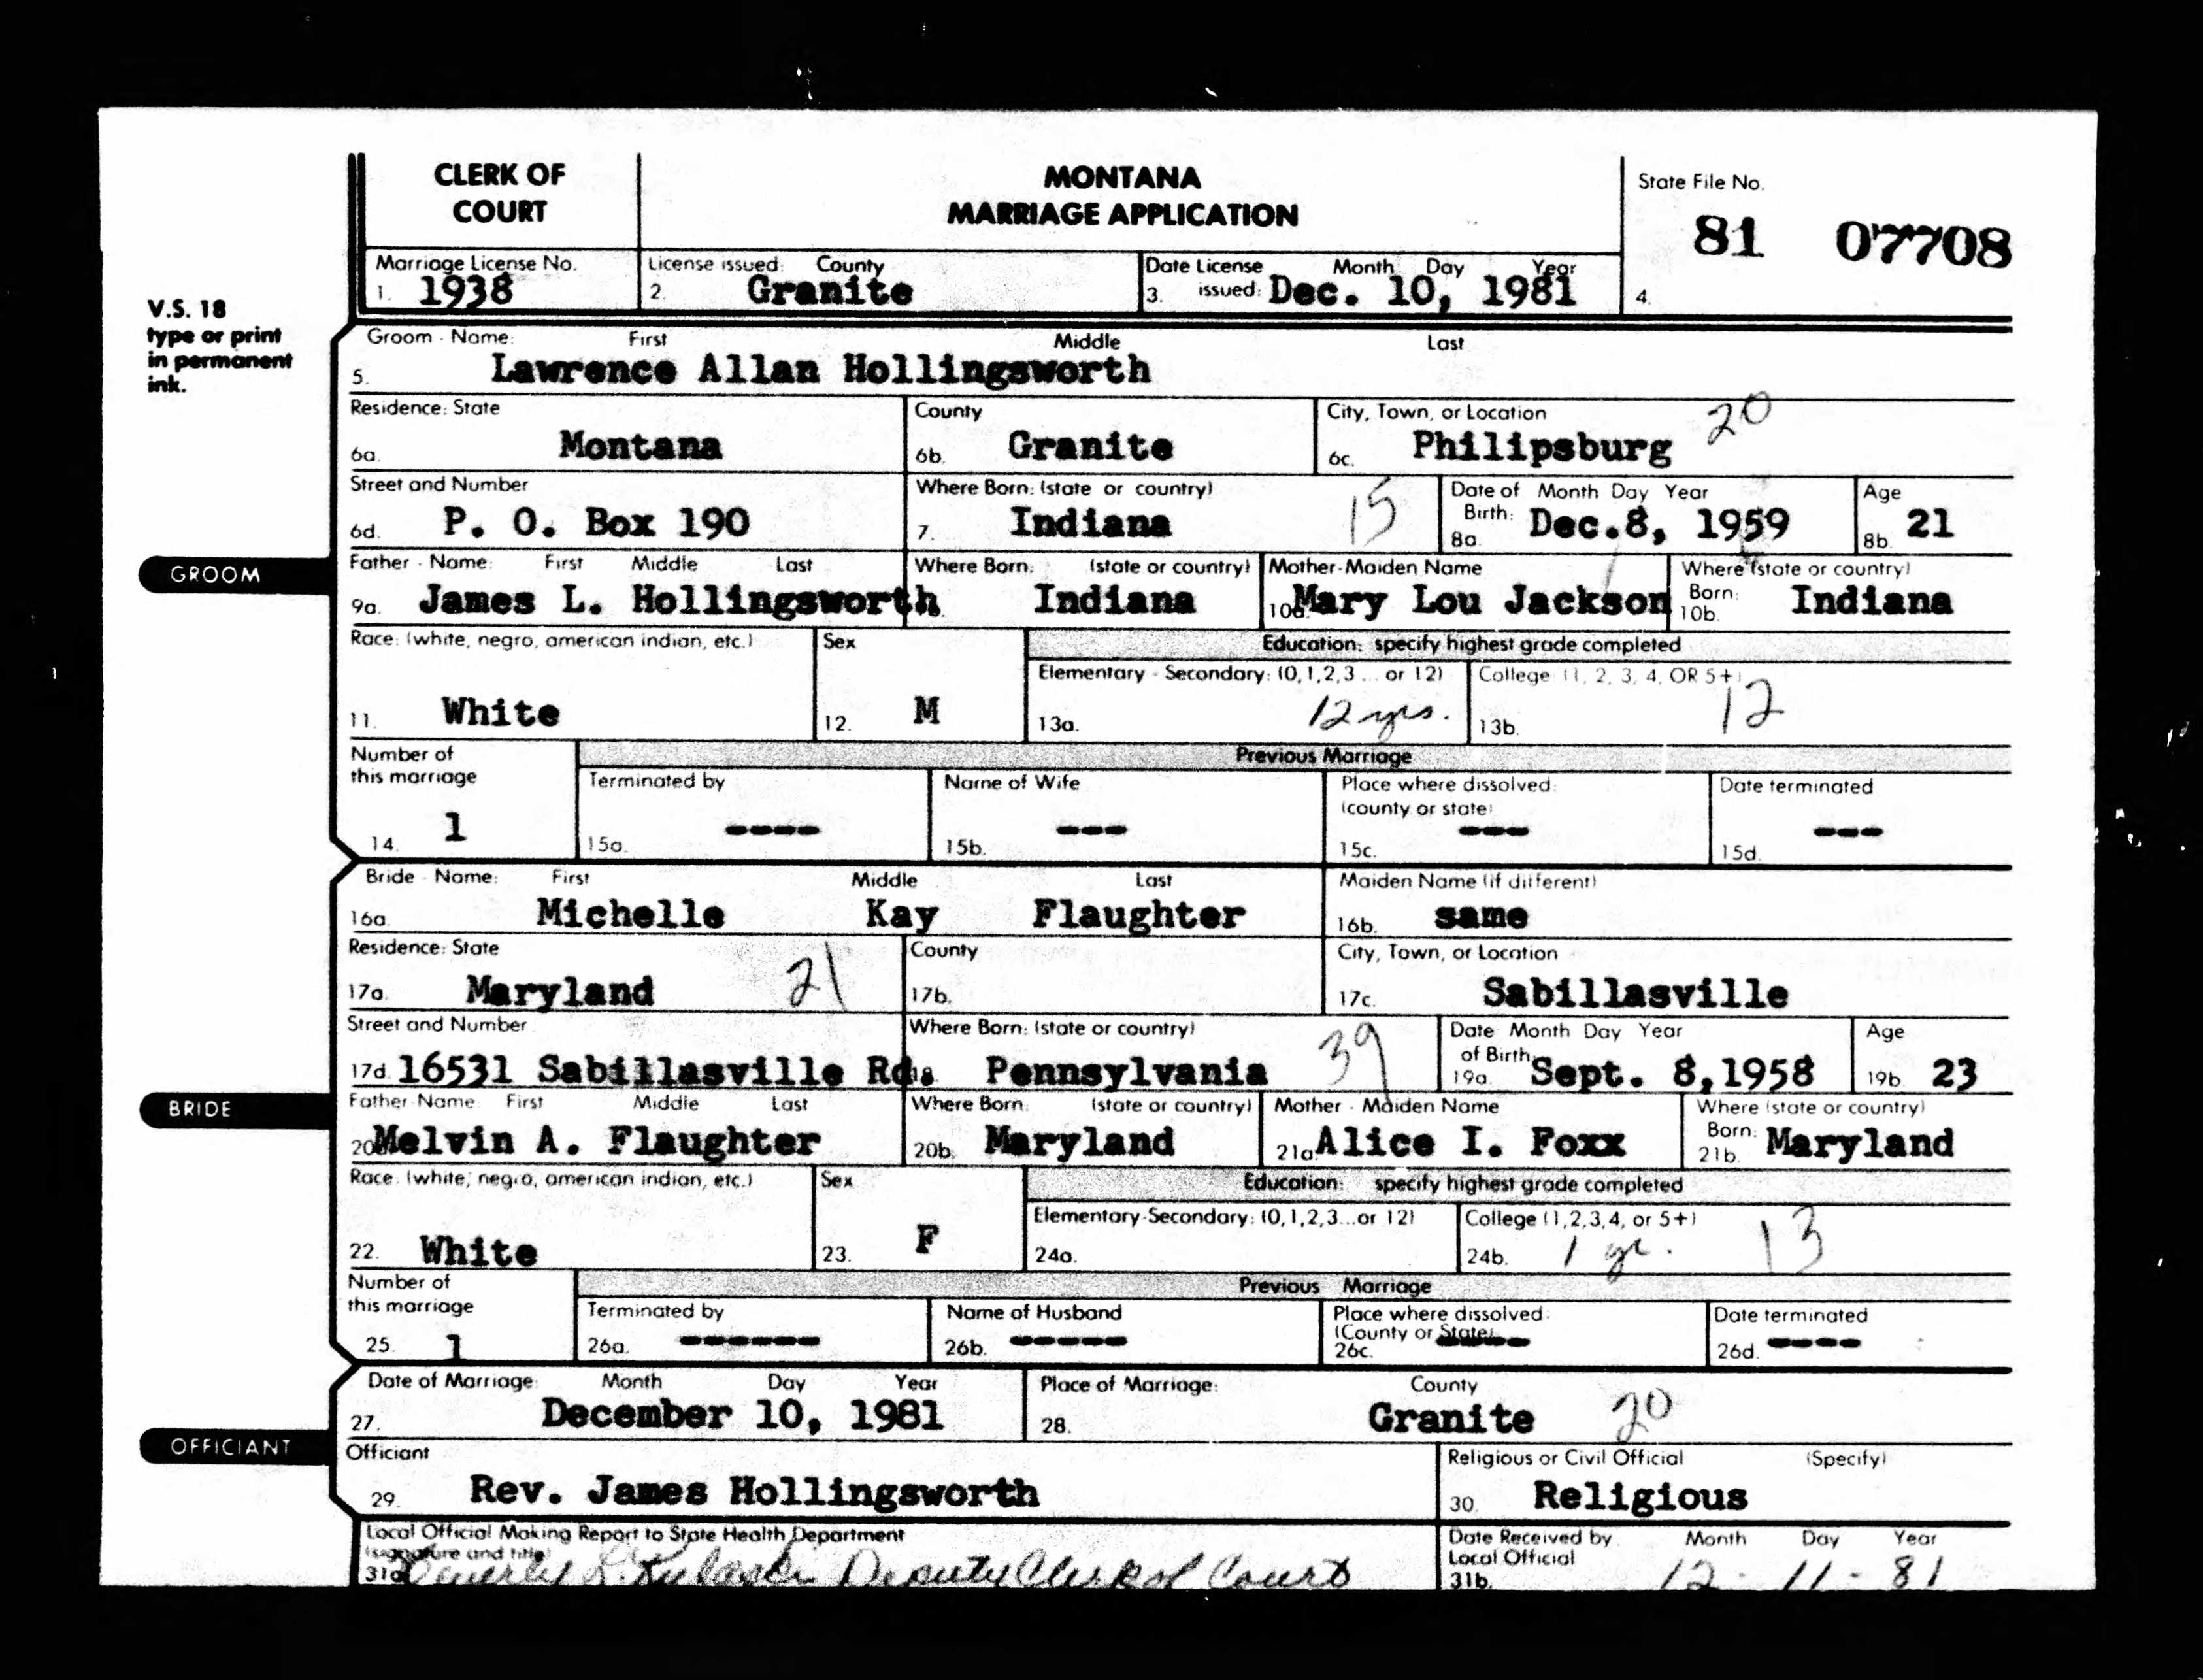 CLERK OF
COURT
MONTANA
MARRIAGE APPLICATION
State File No.
81 07708
4.
Marriage License No.
1. 1938
License issued: County
2. Granite
Date License Month Day Year
3. issued: Dec. 10, 1981
V.S. 18
type or print
in permanent
ink.
GROOM
Groom - Name: First Middle Last
5. Lawrence Allan Hollingsworth
Residence: State County City, Town, or Location 20
6a. Montana 6b. Granite 6c. Philipsburg
Street and Number Where Born: (state or country) 15 Date of Month Day Year Age
Birth:
6d. P. O. Box 190 7. Indiana 8a. Dec.8, 1959 8b. 21
Father - Name: First Middle Last Where Born: (state or country) Mother-Maiden Name Where (state or country)
Born:
9a. James L. Hollingsworth Indiana 10a. Mary Lou Jackson 10b. Indiana
Race: (white, negro, american indian, etc.) Sex Education: specify highest grade completed
Elementary - Secondary: (0,1,2,3 ... or 12) College (1, 2, 3, 4, OR 5+)
11. White 12. M 13a. 12 yrs. 13b. 12
Number of Previous Marriage
this marriage Terminated by Name of Wife Place where dissolved: Date terminated
(county or state)
14. 1 15a. ---- 15b. --- 15c. --- 15d. ---
BRIDE
Bride - Name: First Middle Last Maiden Name (if different)
16a. Michelle Kay Flaughter 16b. same
Residence: State County City, Town, or Location
17a. Maryland 21 17b. 17c. Sabillasville
Street and Number Where Born: (state or country) 39 Date Month Day Year Age
of Birth:
17d. 16531 Sabillasville Rd. 18 Pennsylvania 19a. Sept. 8,1958 19b. 23
Father-Name First Middle Last Where Born: (state or country) Mother - Maiden Name Where (state or country)
Born:
20a Melvin A. Flaughter 20b. Maryland 21a. Alice I. Foxx 21b. Maryland
Race: (white, negro, american indian, etc.) Sex Education: specify highest grade completed
Elementary-Secondary: (0,1,2,3...or 12) College (1,2,3,4, or 5+)
22. White 23. F 24a. 24b. 1 yr. 13
Number of Previous Marriage
this marriage Terminated by Name of Husband Place where dissolved: Date terminated
(County or State)
25. 1 26a. ------ 26b. ----- 26c. ---- 26d. ----
OFFICIANT
Date of Marriage: Month Day Year Place of Marriage: County
27. December 10, 1981 28. Granite 20
Officiant Religious or Civil Official (Specify)
29. Rev. James Hollingsworth 30. Religious
Local Official Making Report to State Health Department Date Received by Month Day Year
(signature and title) Local Official
31a Beverly Deputy Clerk of Court 31b. 12 - 11 - 81